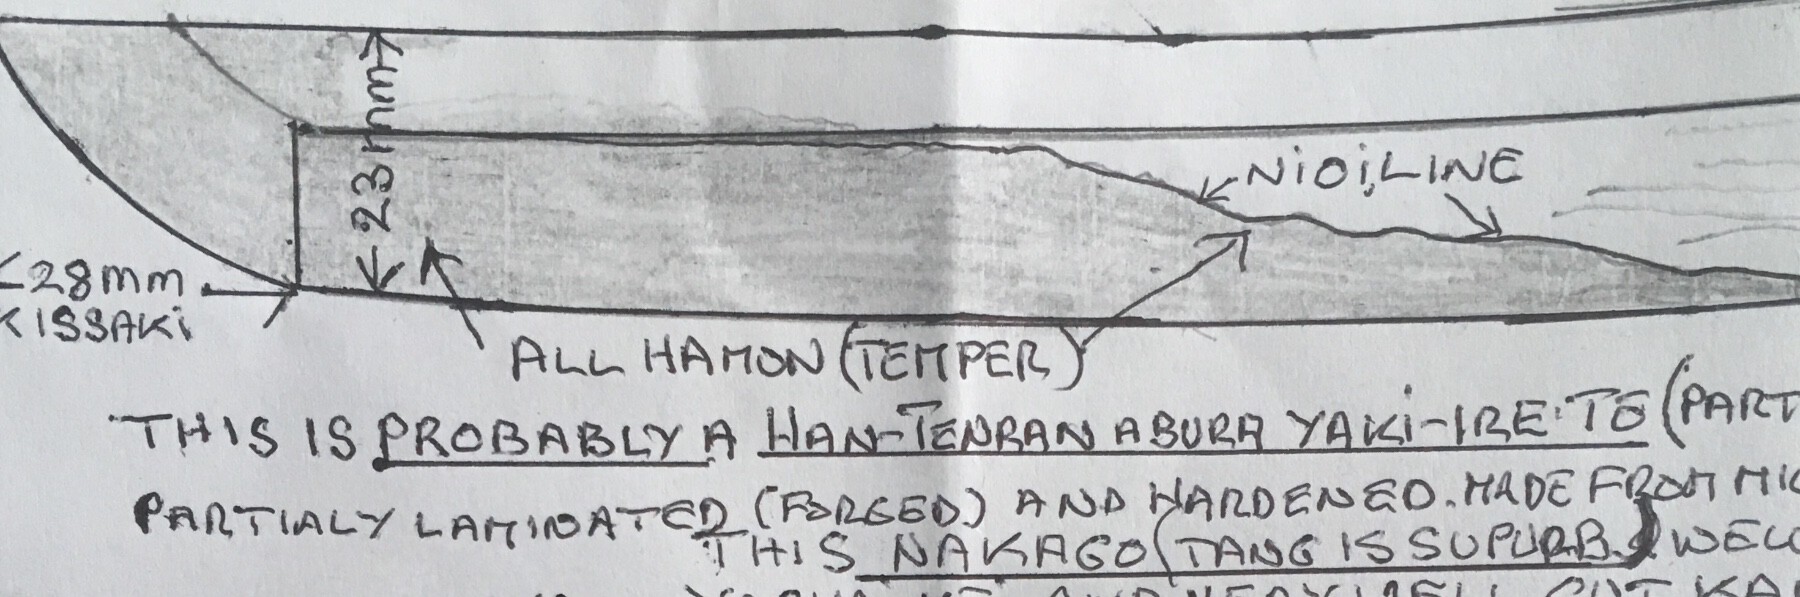 23mm
NiOi LINE
<28mm
KISSAKi
ALL HAMON (TEMPER)
THIS IS PROBABLY A HAN-TENRAN ABURA YAKi-IRE-TO (PART
PARTIALY LAMINATED (FORGED) AND HARDENED. MADE FROM
THIS NAKAGO (TANG IS SUPURB.) WELL